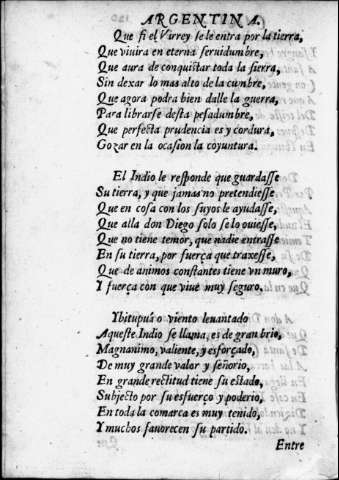 ARGENTINA.
Que si el Virrey se le entra por la tierra,
Que viuira en eterna seruidumbre,
Que aura de conquistar toda la sierra,
Sin dexar lo mas alto de la cumbre,
Que agora podra bien dalle la guerra,
Para librarse desta pesadumbre,
Que perfecta prudencia es y cordura,
Gozar en la ocasion la coyuntura.
El Indio le responde que guardasse
Su tierra, y que jamas no pretendiesse
Que en cosa con los suyos le ayudasse,
Que alla don Diego solo se lo ouiesse,
Que no tiene temor, que nadie entrasse
En su tierra, por fuerça que traxesse,
Que de animos constantes tiene vn muro,
Y fuerça con que viue muy seguro.
Ybitupuà o viento leuantado
Aqueste Indio se llama, es de gran brio,
Magnanimo, valiente, y esforçado,
De muy grande valor y señorio,
En grande rectitud tiene su estado,
Subjecto por su esfuerço y poderio,
En toda la comarca es muy tenido,
Y muchos fauorecen su partido.
Entre